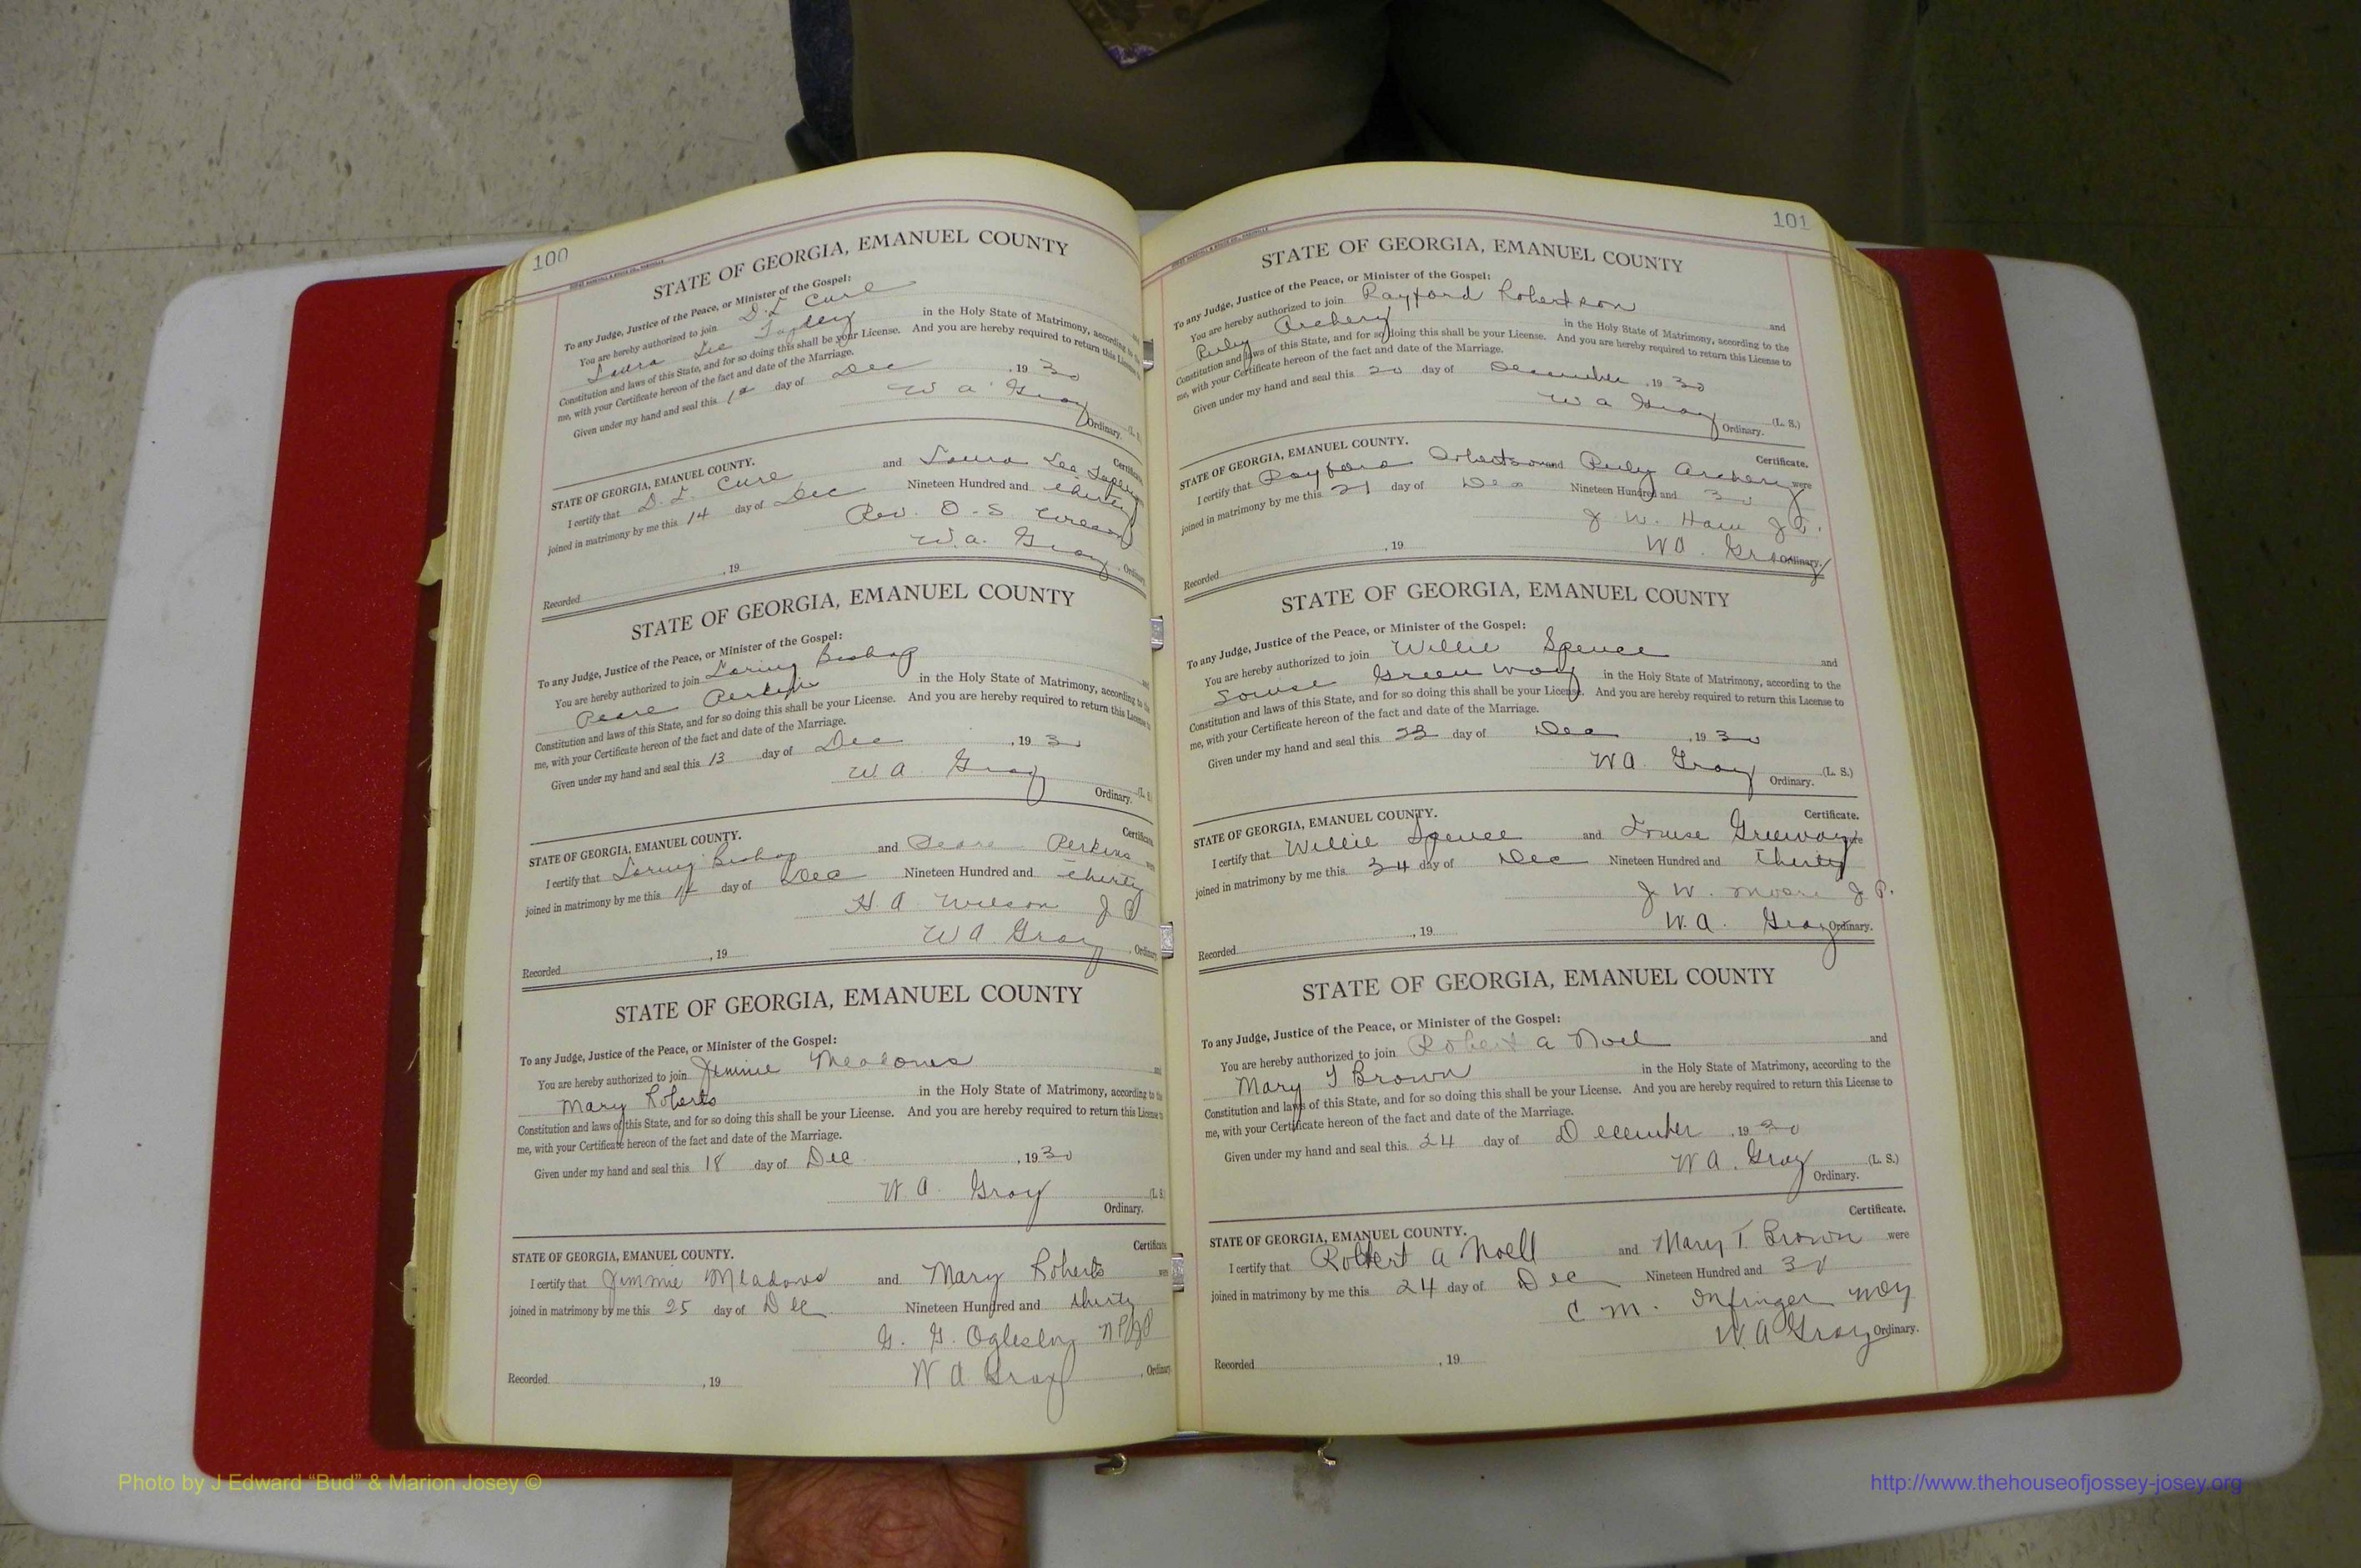 100
STATE OF GEORGIA, EMANUEL COUNTY
To any Judge, Justice of the Peace, or Minister of the Gospel:
You are hereby authorized to join D. L Curl
Laura Lee in the Holy State of Matrimony, according to the
Constitution and laws of this State, and for so doing this shall be your License. And you are hereby required to return this License
me, with your Certificate hereon of the fact and date of the Marriage.
Given under my hand and seal this day of Dec , 19 30
W a Gray (L. S.
Ordinary.
STATE OF GEORGIA, EMANUEL COUNTY. Certificate
I certify that D. L. Curl and Laura Lee
joined in matrimony by me this 14 day of Dec Nineteen Hundred and thirty
Rev. O. S.
W. a. Gray
Recorded , 19 , Ordinary
STATE OF GEORGIA, EMANUEL COUNTY
To any Judge, Justice of the Peace, or Minister of the Gospel:
You are hereby authorized to join Loring Bishop and
Pearl Perkins in the Holy State of Matrimony, according to the
Constitution and laws of this State, and for so doing this shall be your License. And you are hereby required to return this License to
me, with your Certificate hereon of the fact and date of the Marriage.
Given under my hand and seal this 13 day of Dec , 19 30
W. A Gray (L. S
Ordinary.
STATE OF GEORGIA, EMANUEL COUNTY. Certificate
I certify that Loring Bishop and Pearl Perkins were
joined in matrimony by me this day of Dec Nineteen Hundred and thirty
H A Wilson J P
W A Gray , Ordinary
Recorded , 19
STATE OF GEORGIA, EMANUEL COUNTY
To any Judge, Justice of the Peace, or Minister of the Gospel:
You are hereby authorized to join Jimmie Meadows and
Mary Roberts in the Holy State of Matrimony, according to the
Constitution and laws of this State, and for so doing this shall be your License. And you are hereby required to return this License to
me, with your Certificate hereon of the fact and date of the Marriage.
Given under my hand and seal this 18 day of Dec , 19 30
W. A. Gray (L. S
Ordinary.
STATE OF GEORGIA, EMANUEL COUNTY. Certificate
I certify that Jimmie Meadows and Mary Roberts were
joined in matrimony by me this 25 day of Dec Nineteen Hundred and thirty
G. G. Oglesby NP JP
W A Gray , Ordinary
Recorded , 19
101
STATE OF GEORGIA, EMANUEL COUNTY
To any Judge, Justice of the Peace, or Minister of the Gospel:
You are hereby authorized to join Rayford Robertson and
Ruby Archery in the Holy State of Matrimony, according to the
Constitution and laws of this State, and for so doing this shall be your License. And you are hereby required to return this License to
me, with your Certificate hereon of the fact and date of the Marriage.
Given under my hand and seal this 20 day of December , 19 30
W a Gray (L. S.)
Ordinary.
STATE OF GEORGIA, EMANUEL COUNTY. Certificate.
I certify that Rayford Robertson and Ruby Archery were
joined in matrimony by me this 21 day of Dec Nineteen Hundred and 30
J. W. J P.
W A. Gray Ordinary.
Recorded , 19
STATE OF GEORGIA, EMANUEL COUNTY
To any Judge, Justice of the Peace, or Minister of the Gospel:
You are hereby authorized to join Willie Spence and
Louise Green way in the Holy State of Matrimony, according to the
Constitution and laws of this State, and for so doing this shall be your License. And you are hereby required to return this License to
me, with your Certificate hereon of the fact and date of the Marriage.
Given under my hand and seal this 23 day of Dec , 19 30
W A. Gray (L. S.)
Ordinary.
STATE OF GEORGIA, EMANUEL COUNTY. Certificate.
I certify that Willie Spence and Louise Greenway were
joined in matrimony by me this 24 day of Dec Nineteen Hundred and thirty
J. W. Moore J P.
W. A. Gray Ordinary.
Recorded , 19
STATE OF GEORGIA, EMANUEL COUNTY
To any Judge, Justice of the Peace, or Minister of the Gospel:
You are hereby authorized to join Robert a Noel and
Mary T Brown in the Holy State of Matrimony, according to the
Constitution and laws of this State, and for so doing this shall be your License. And you are hereby required to return this License to
me, with your Certificate hereon of the fact and date of the Marriage.
Given under my hand and seal this 24 day of December , 19 30
W A. Gray (L. S.)
Ordinary.
STATE OF GEORGIA, EMANUEL COUNTY. Certificate.
I certify that Robert A Noell and Mary T. Brown were
joined in matrimony by me this 24 day of Dec Nineteen Hundred and 30
C. M. Infinger
W. A Gray Ordinary.
Recorded , 19
Photo by J Edward “Bud” & Marion Josey ©
http://www.thehouseofjossey-josey.org